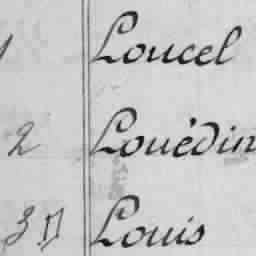 Loucel
2 Louédin
3 Louis